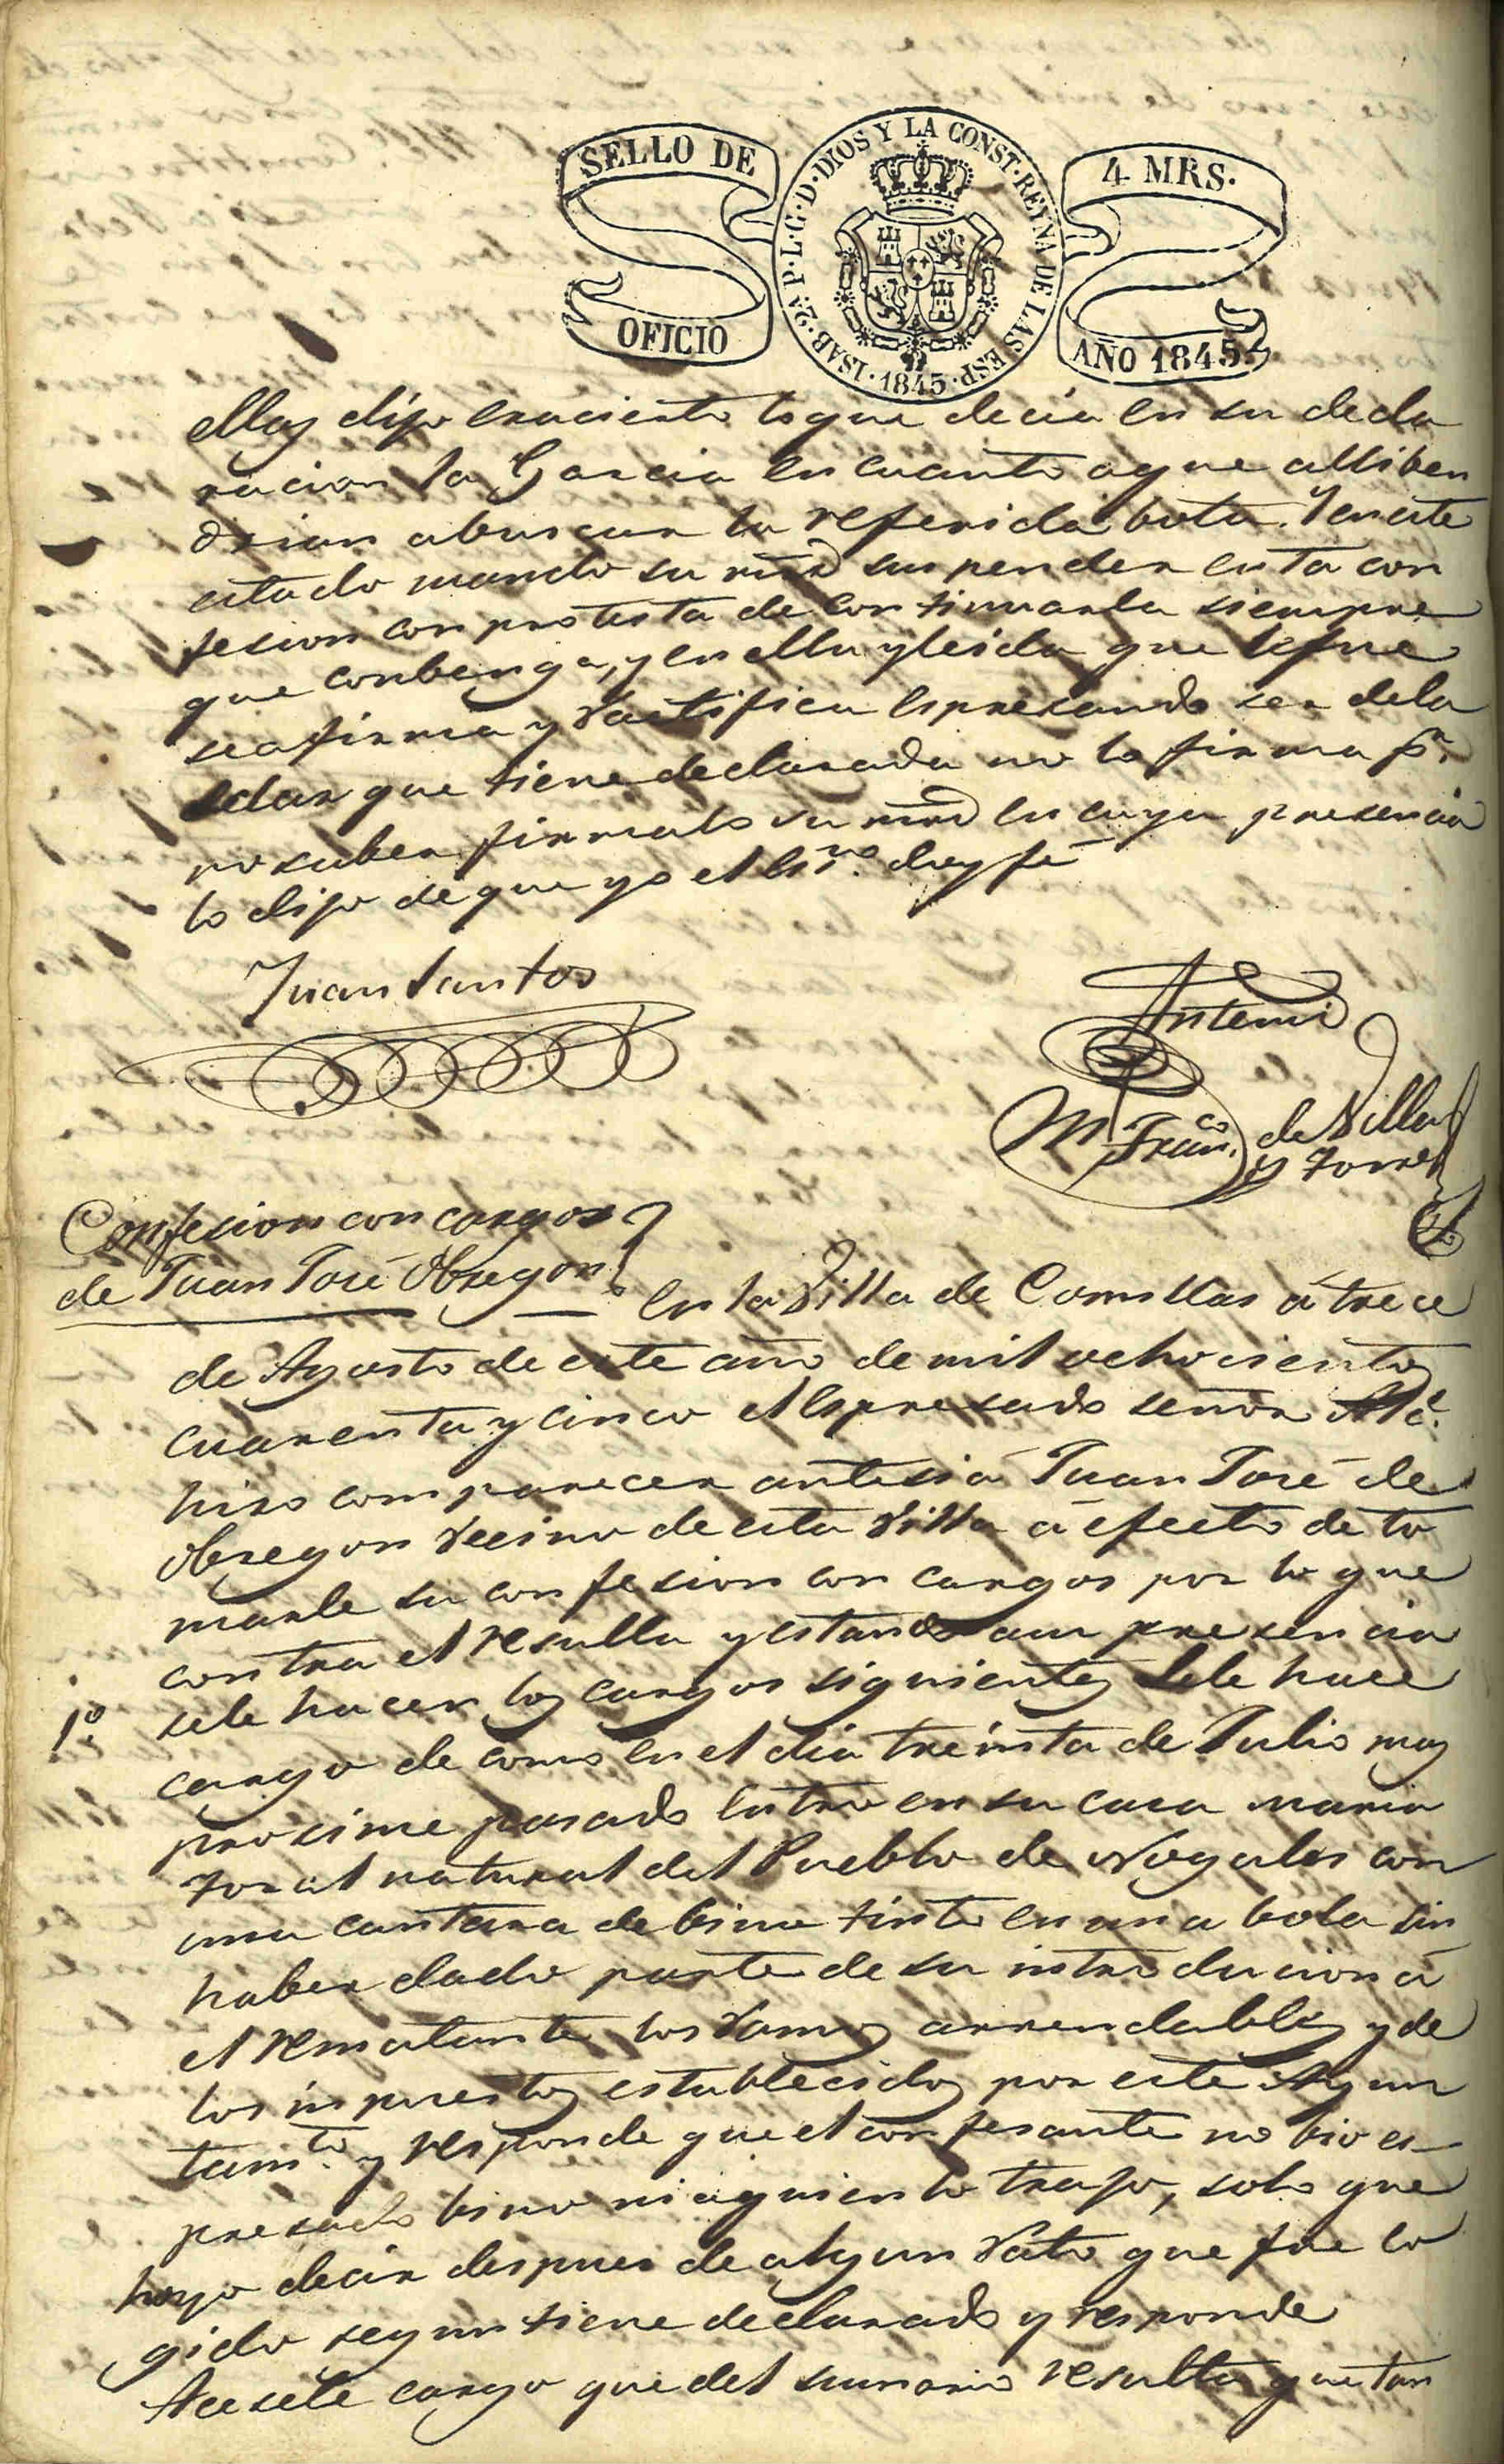 SELLO DE OFICIO
ISAB. 2A. P. L. G. D. DIOS Y LA CONST. REYNA DE LAS ESP. 1845.
4 MRS.
AÑO 1845.
ellas dijo era cierto lo que decia en su decla
racion la Garcia en cuanto a que alli ben
drian a buscar la referida bota. Y en este
estado mando su mrd suspender esta con
fesion con protesta de continuarla siempre
que conbenga, y en ella y leida que le fue
se afirma y ractifica espresando ser de la
edad que tiene declarada no lo firma pr.
no saber firmalo su mrd en cuya presencia
lo dijo de que yo el Esno. doy fé
Juan Santos
Antemi
M Franco. de Villa
y Torre
Confesion con cargos
de Juan José Obregon
En la Villa de Comillas á trece
de Agosto de este año de mil ochocientos
cuarenta y cinco el espresado señor Alce.
hiso comparecer ante si á Juan José de
Obregon vecino de esta Villa á efecto de to
marle su confesion con cargos por lo que
contra el resulta y estando a su presencia
1º. se le hacen los cargos siguientes Se le hace
cargo de como en el dia treinta de Julio mas
procsime pasado entro en su casa maria
Toral natural del Pueblo de Nogales con
una cantara de bino tinto en una bota sin
haber dado parte de su introducion á
el rematante los ramos arrendables y de
los inpuestos establecidos por este Ayun
tamto. y responde que el confesante no bio es
presado bino ni aquien lo trajo, solo que
hoyo decir despues de algun rato que fue co
gido segun tiene declarado y responde
A este cargo que del sumario resulta que tan